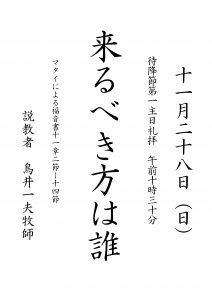 十一月二十八日（日）
待降節第一主日礼拝　午前十時三十分
来るべき方は誰
マタイによる福音書十一章二節ー十四節
説教者　鳥井一夫牧師